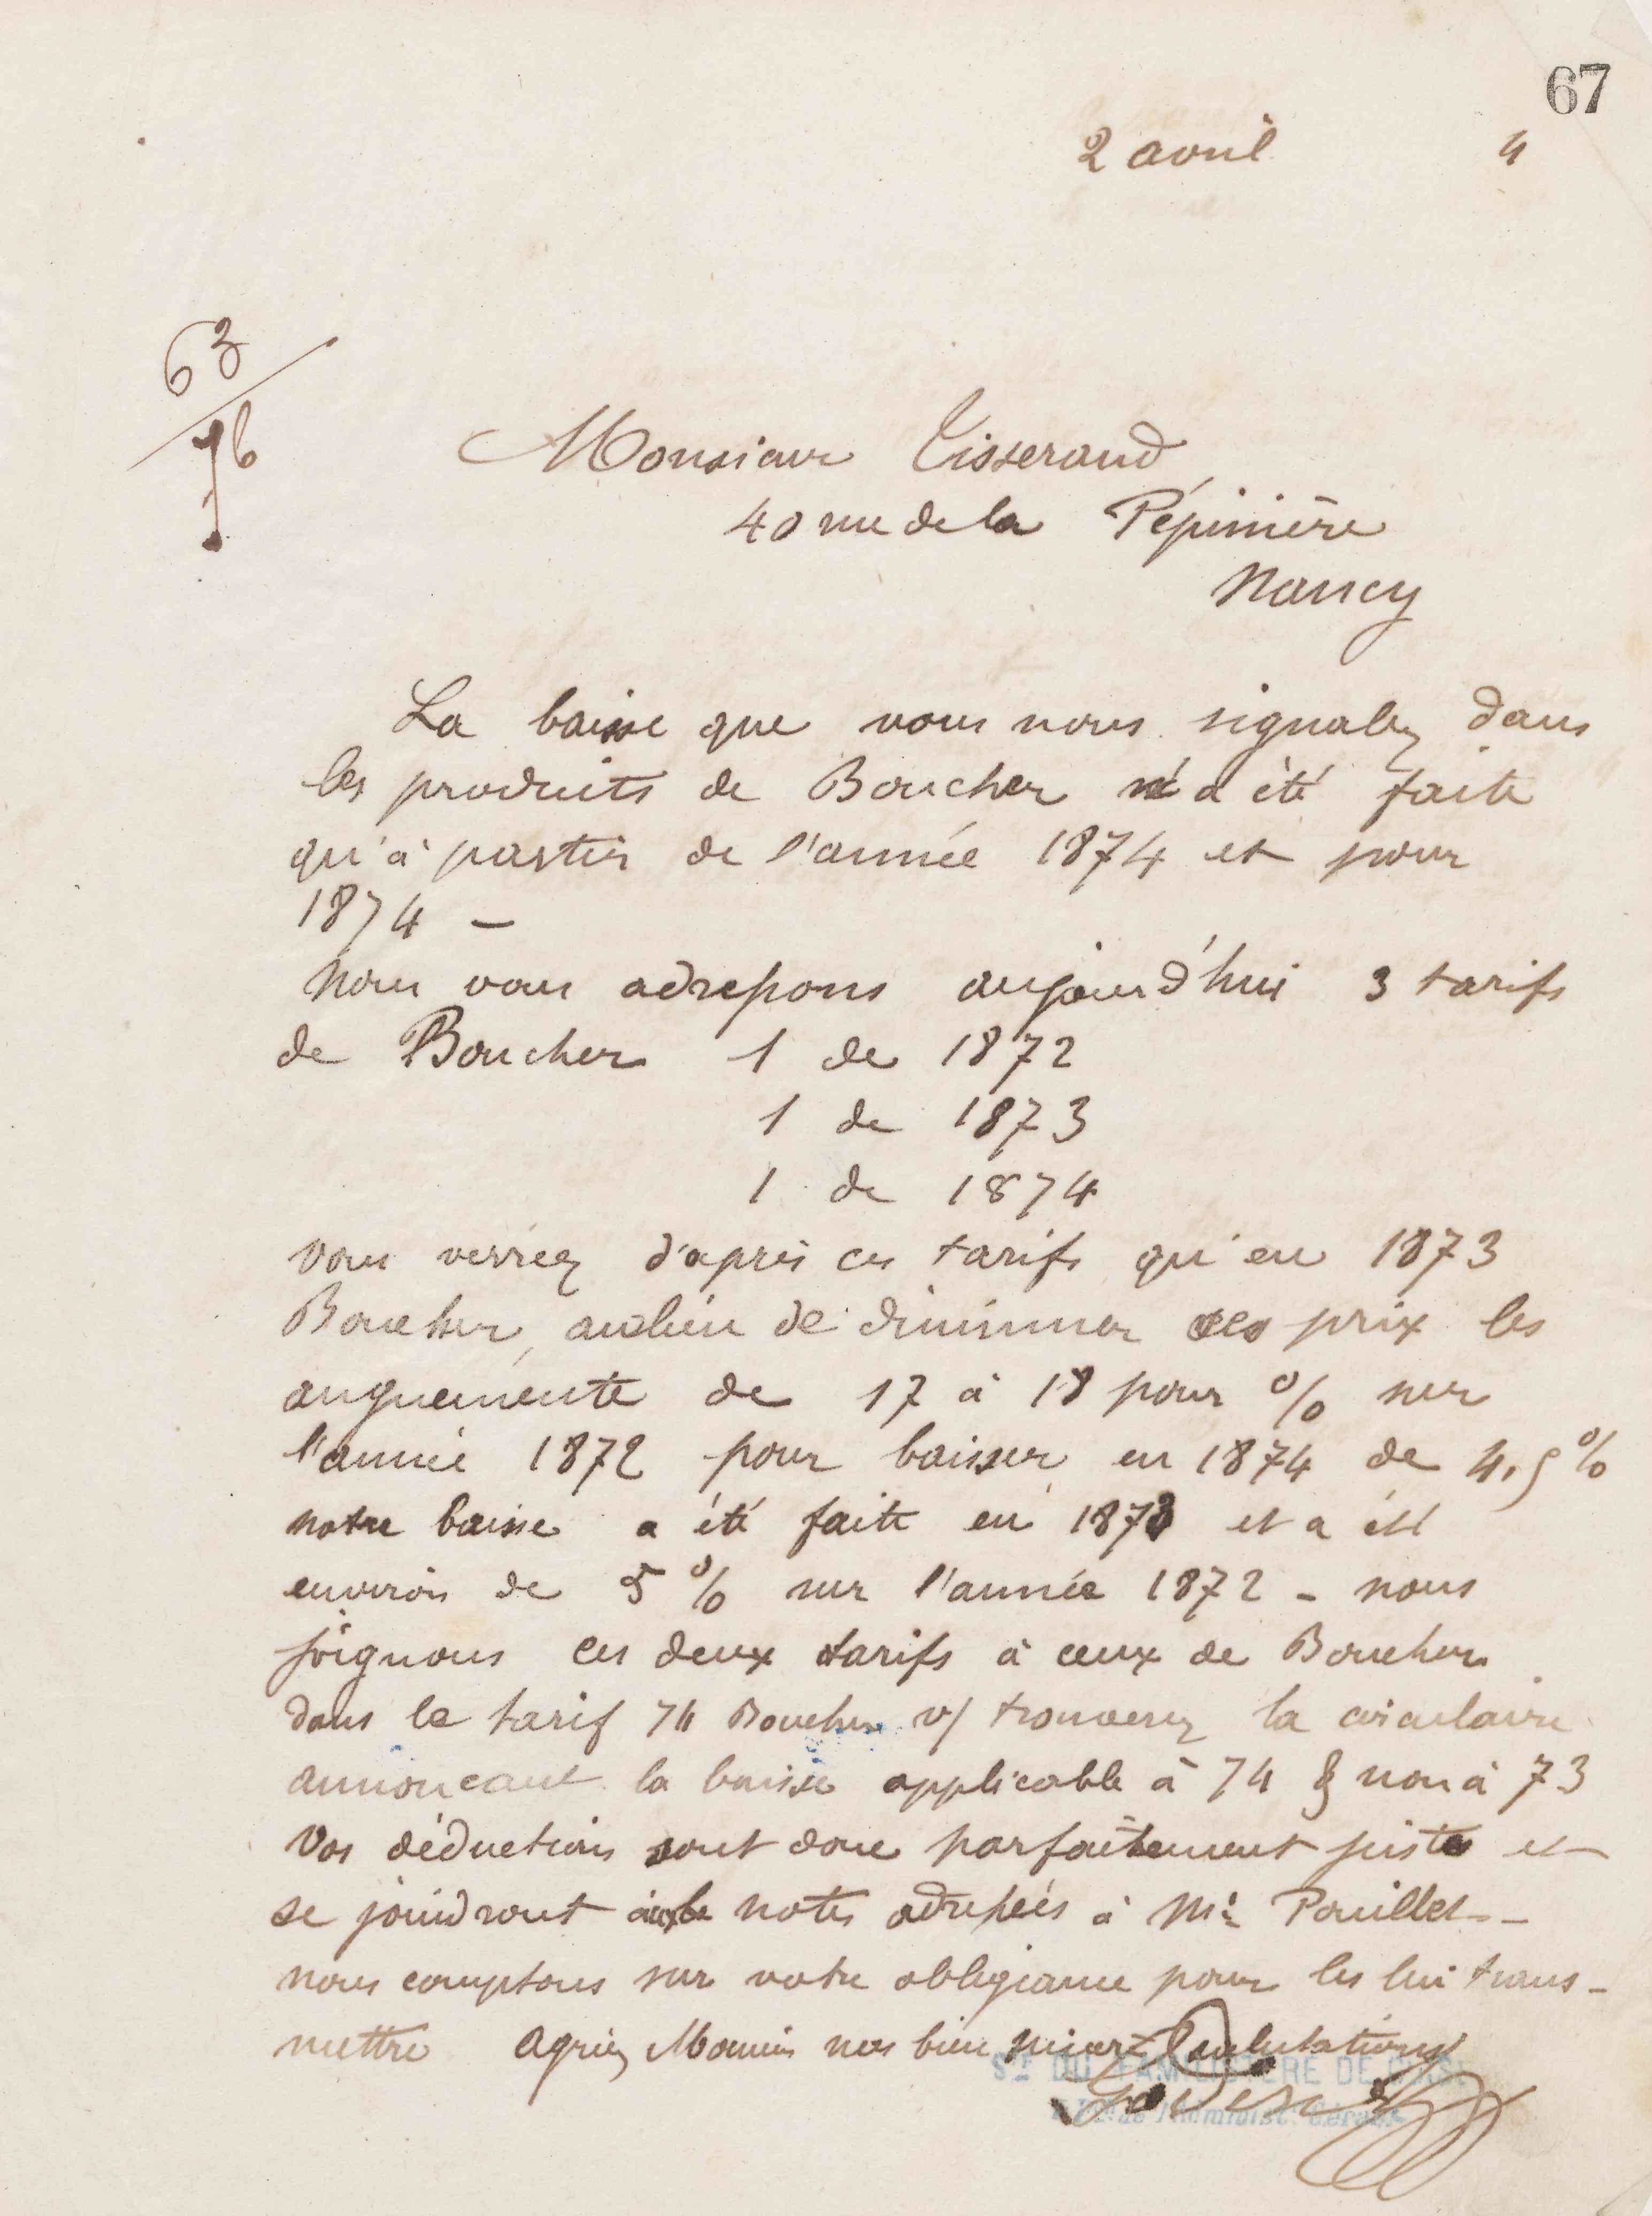 67
2 avril 4
63
76
Monsieur Tisserand
40 rue de la Pépinière
Nancy
La baisse que vous nous signalez dans
les produits de Boucher n'a été faite
qu'à partir de l'année 1874 et pour
1874 –
Nous vous adressons aujourd'hui 3 tarifs
de Boucher 1 de 1872
1 de 1873
1 de 1874
Vous verrez d'après ces tarifs qu'en 1873
Boucher, au lieu de diminuer ses prix les
augmente de 17 à 18 pour % sur
l'année 1872 pour baisser en 1874 de 4,5 %
notre baisse a été faite en 1873 et a été
environ de 5 % sur l'année 1872 – nous
joignons ces deux tarifs à ceux de Boucher
dans le tarif 74 Boucher v/ trouverez la circulaire
annoncant la baisse applicable à 74 & non à 73
Vos déductions sont donc parfaitement justes et
se joindront aux notes adressées à Mr Pouillet –
nous comptons sur votre obligeance pour les lui trans-
mettre Agréez Monsieur nos bien sincères salutations
Sté DU FAMILISTÈRE DE GUISE
Godin